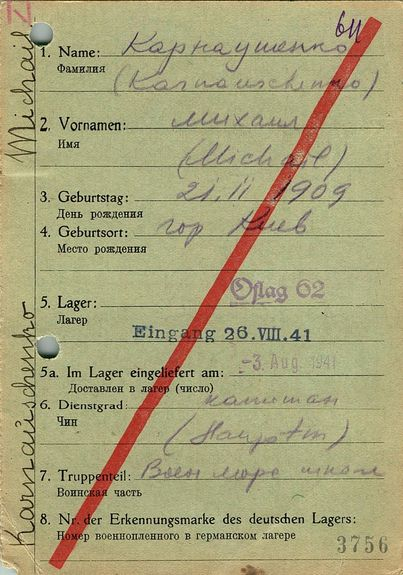 Michail
Karnauschenko
1. Name: Карнаушенко
Фамилия
(Karnauschenko)
2. Vornamen: Михаил
Имя
(Michail)
3. Geburtstag: 21.II 1909
День рождения
4. Geburtsort: гор Киев
Место рождения
Oflag 62
5. Lager:
Лагерь
Eingang 26.VIII.41
-3. Aug. 1941
5a. Im Lager eingeliefert am:
Доставлен в лагер (число)
6. Dienstgrad: капитан
Чин
(Hauptm)
7. Truppenteil: Воен
Воинская часть
8. Nr. der Erkennungsmarke des deutschen Lagers:
Номер военнопленного в германском лагере
3756